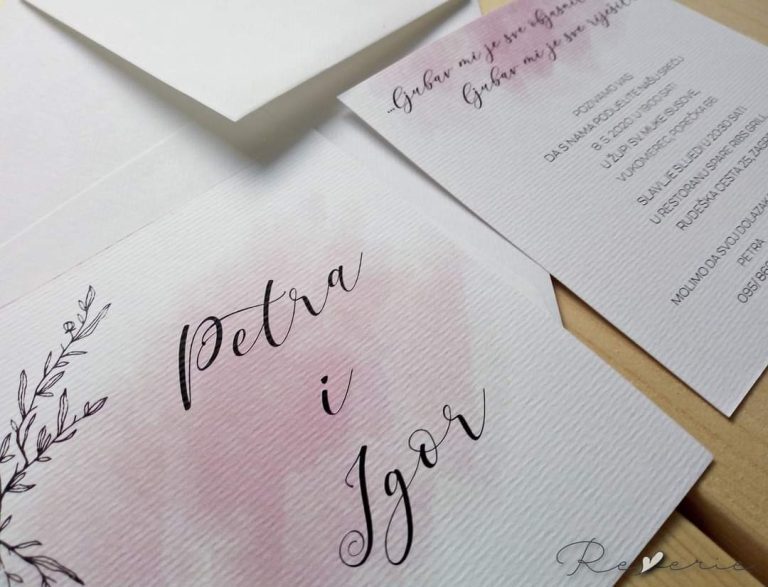 Petra
i
Igor
...Ljubav mi je sve objasnila
Ljubav mi je sve riješila
POZIVAMO VAS
DA S NAMA PODIJELITE NAŠU SREĆU
8. 5. 2020. U 19:00 SATI
U ŽUPI SV. MUKE ISUSOVE
VUKOMEREC, POREČKA 66
SLAVLJE SLIJEDI U 20:30 SATI
U RESTORANU SPARE RIBS GRILL
RUDEŠKA CESTA 25, ZAGRE
MOLIMO DA SVOJ DOLAZAK
PETRA
095/ 869
Reverie